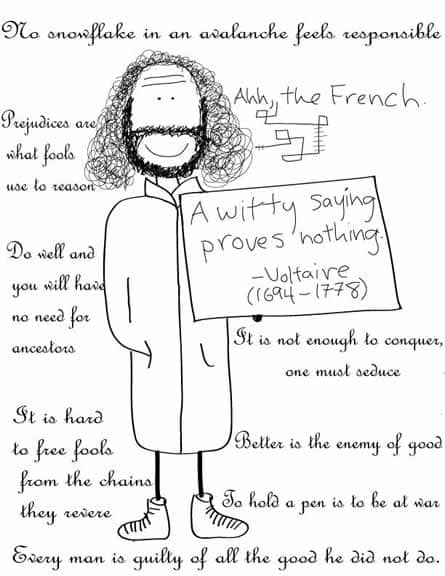 No snowflake in an avalanche feels responsible
Ahh, the French.
Prejudices are
what fools
use to reason
A witty saying
proves nothing.
-Voltaire
(1694-1778)
Do well and
you will have
no need for
ancestors
It is not enough to conquer,
one must seduce
It is hard
to free fools
from the chains
they revere
Better is the enemy of good
To hold a pen is to be at war
Every man is guilty of all the good he did not do.